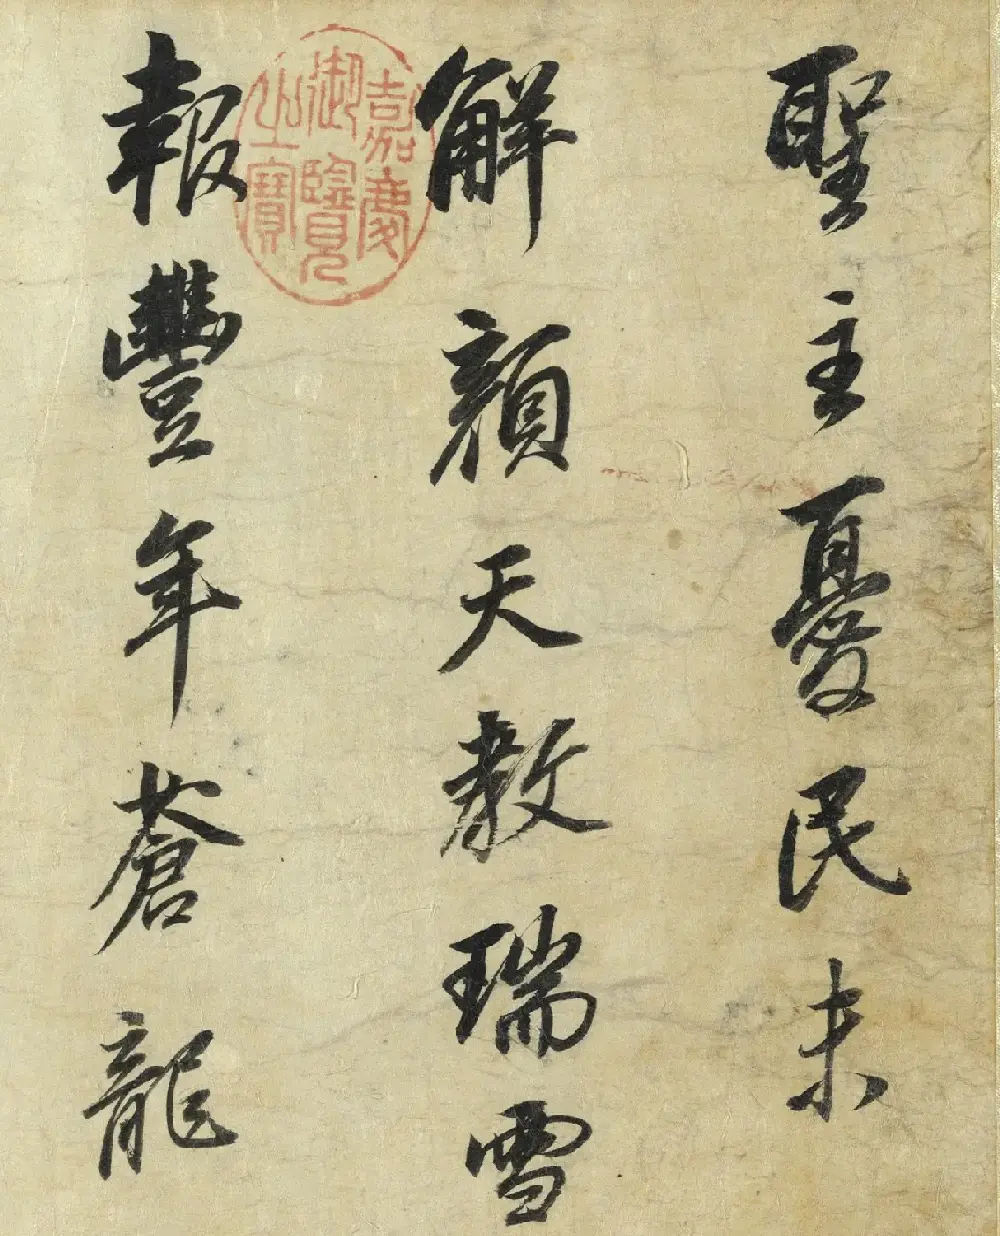 聖主憂民未
解顔天教瑞雪
報豐年蒼龍
嘉慶
御覽
之寶